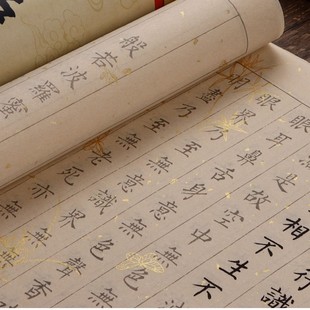 般若波羅蜜
行識
相不生不
是故空中無色無
耳鼻舌身意無色聲香
眼界乃至無意識界無
明盡乃至無老死亦無